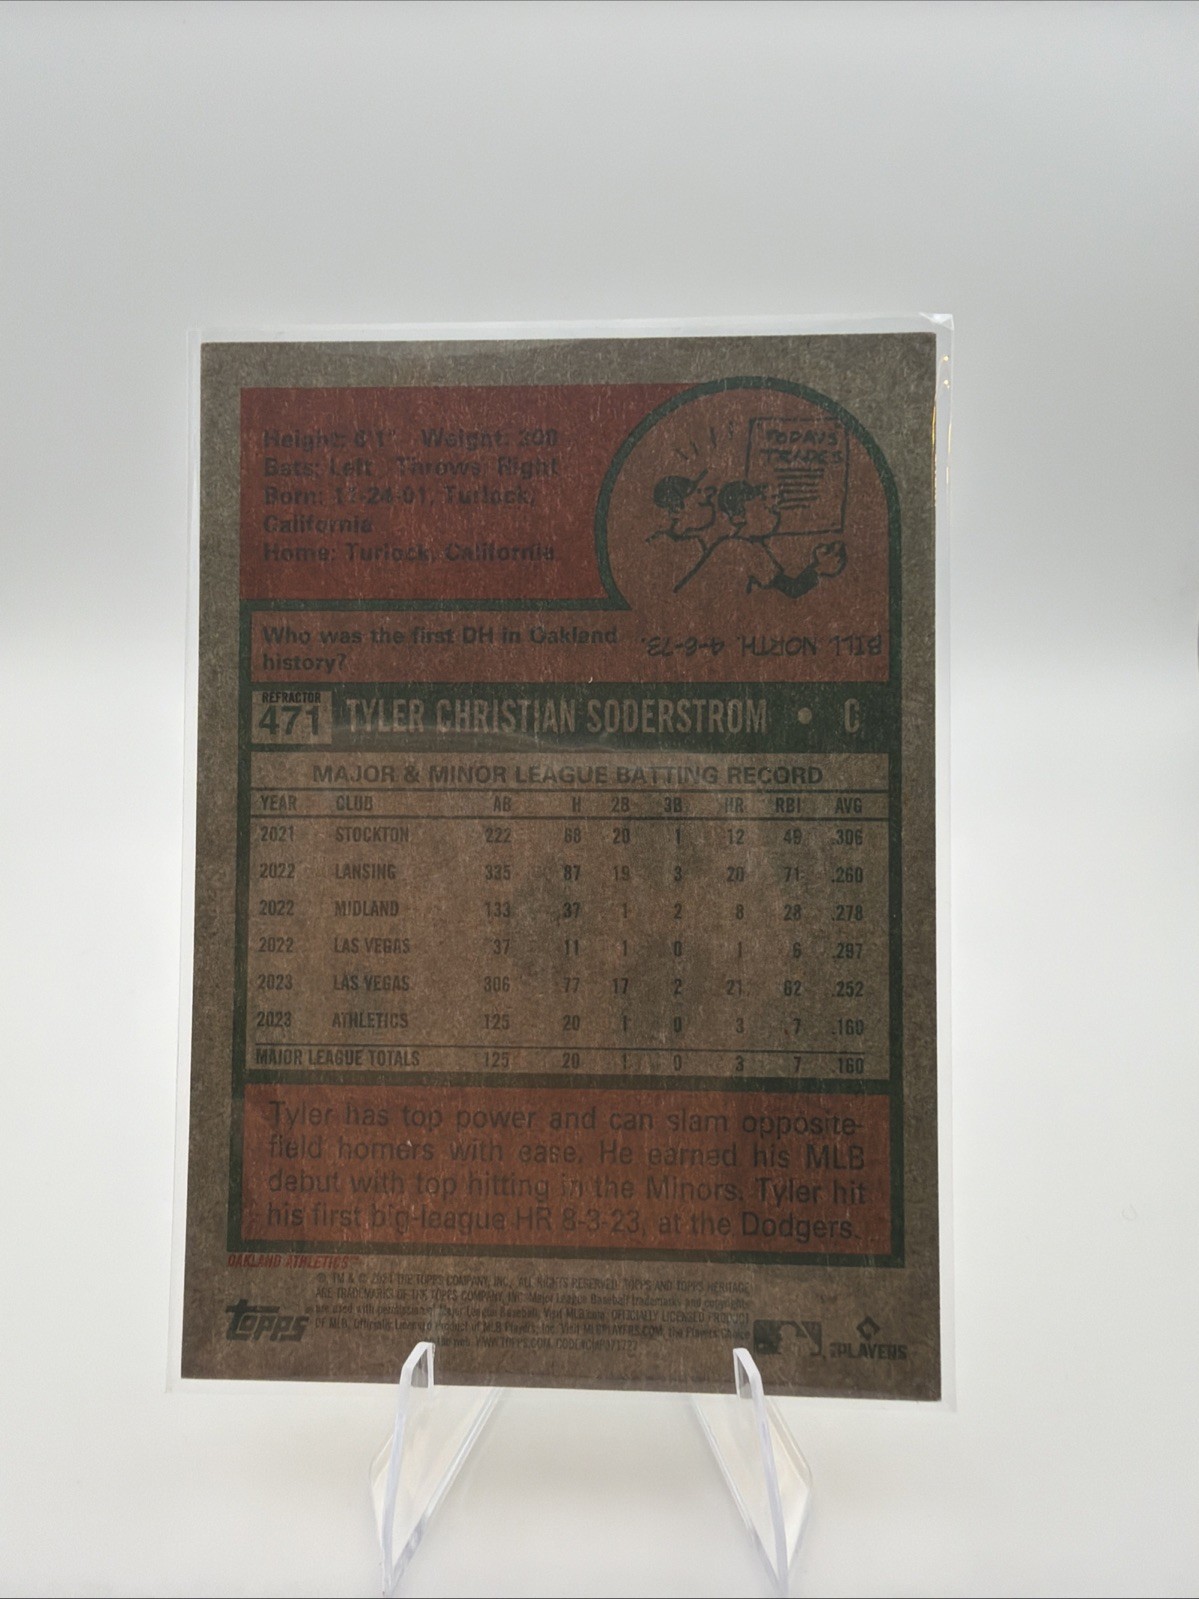 Height: 6'1" Weight: 200
Bats: Left Throws: Right
Born: 11-24-01, Turlock,
California
Home: Turlock, California
TODAYS
TRADES
Who was the first DH in Oakland
history?
BILL NORTH, 4-6-73.
REFRACTOR
471 TYLER CHRISTIAN SODERSTROM • C
MAJOR & MINOR LEAGUE BATTING RECORD
YEAR CLUB AB H 2B 3B HR RBI AVG
2021 STOCKTON 222 68 20 1 12 49 .306
2022 LANSING 335 87 19 3 20 71 .260
2022 MIDLAND 133 37 1 2 8 28 .278
2022 LAS VEGAS 37 11 1 0 1 6 .297
2023 LAS VEGAS 306 77 17 2 21 62 .252
2023 ATHLETICS 125 20 1 0 3 7 .160
MAJOR LEAGUE TOTALS 125 20 1 0 3 7 .160
Tyler has top power and can slam opposite-
field homers with ease. He earned his MLB
debut with top hitting in the Minors. Tyler hit
his first big-league HR 8-3-23, at the Dodgers.
OAKLAND ATHLETICS™
®, TM & © 2024 THE TOPPS COMPANY, INC. ALL RIGHTS RESERVED. TOPPS AND TOPPS HERITAGE
ARE TRADEMARKS OF THE TOPPS COMPANY, INC. Major League Baseball trademarks and copyrights
are used with permission of Major League Baseball. Visit MLB.com. OFFICIALLY LICENSED PRODUCT
OF MLB Players, Inc. Visit MLBPLAYERS.COM, the Players Choice
WWW.TOPPS.COM. CODE#CMP071727
topps
PLAYERS